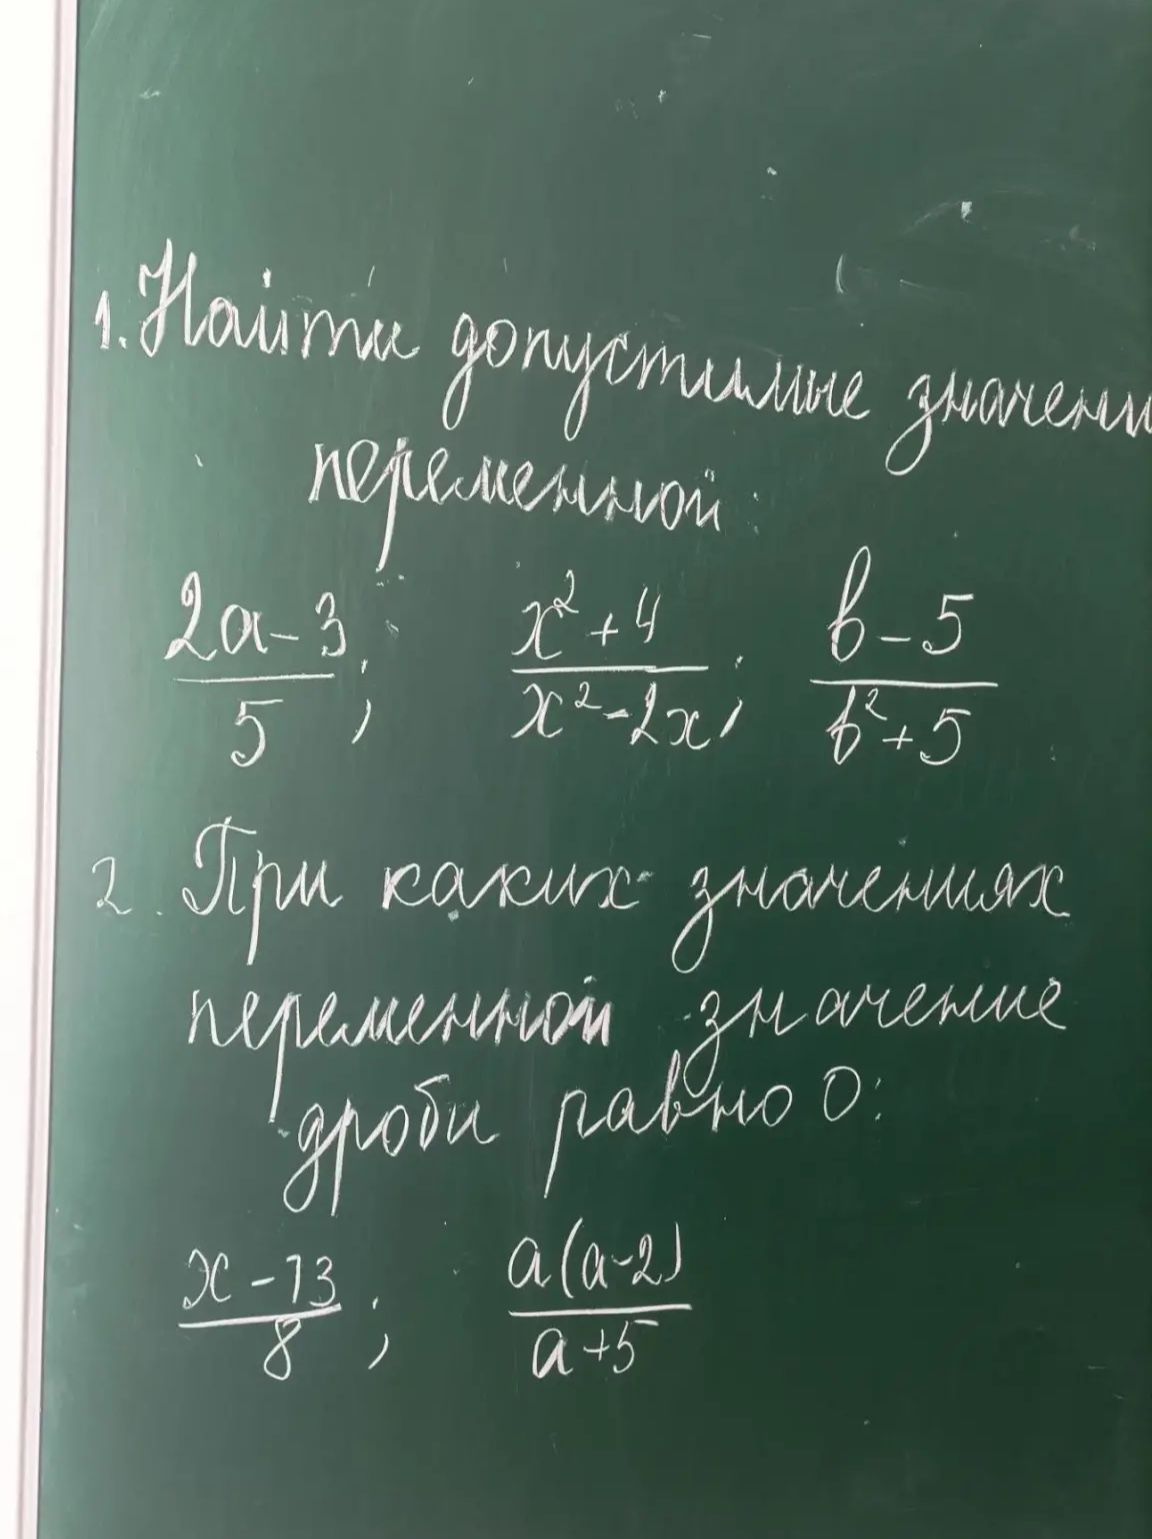 1. Найти допустимые значени
переменной:
2a-3/5; x²+4/x²-2x; b-5/b²+5
2. При каких значениях
переменной значение
дроби равно 0:
x-13/8; a(a-2)/a+5